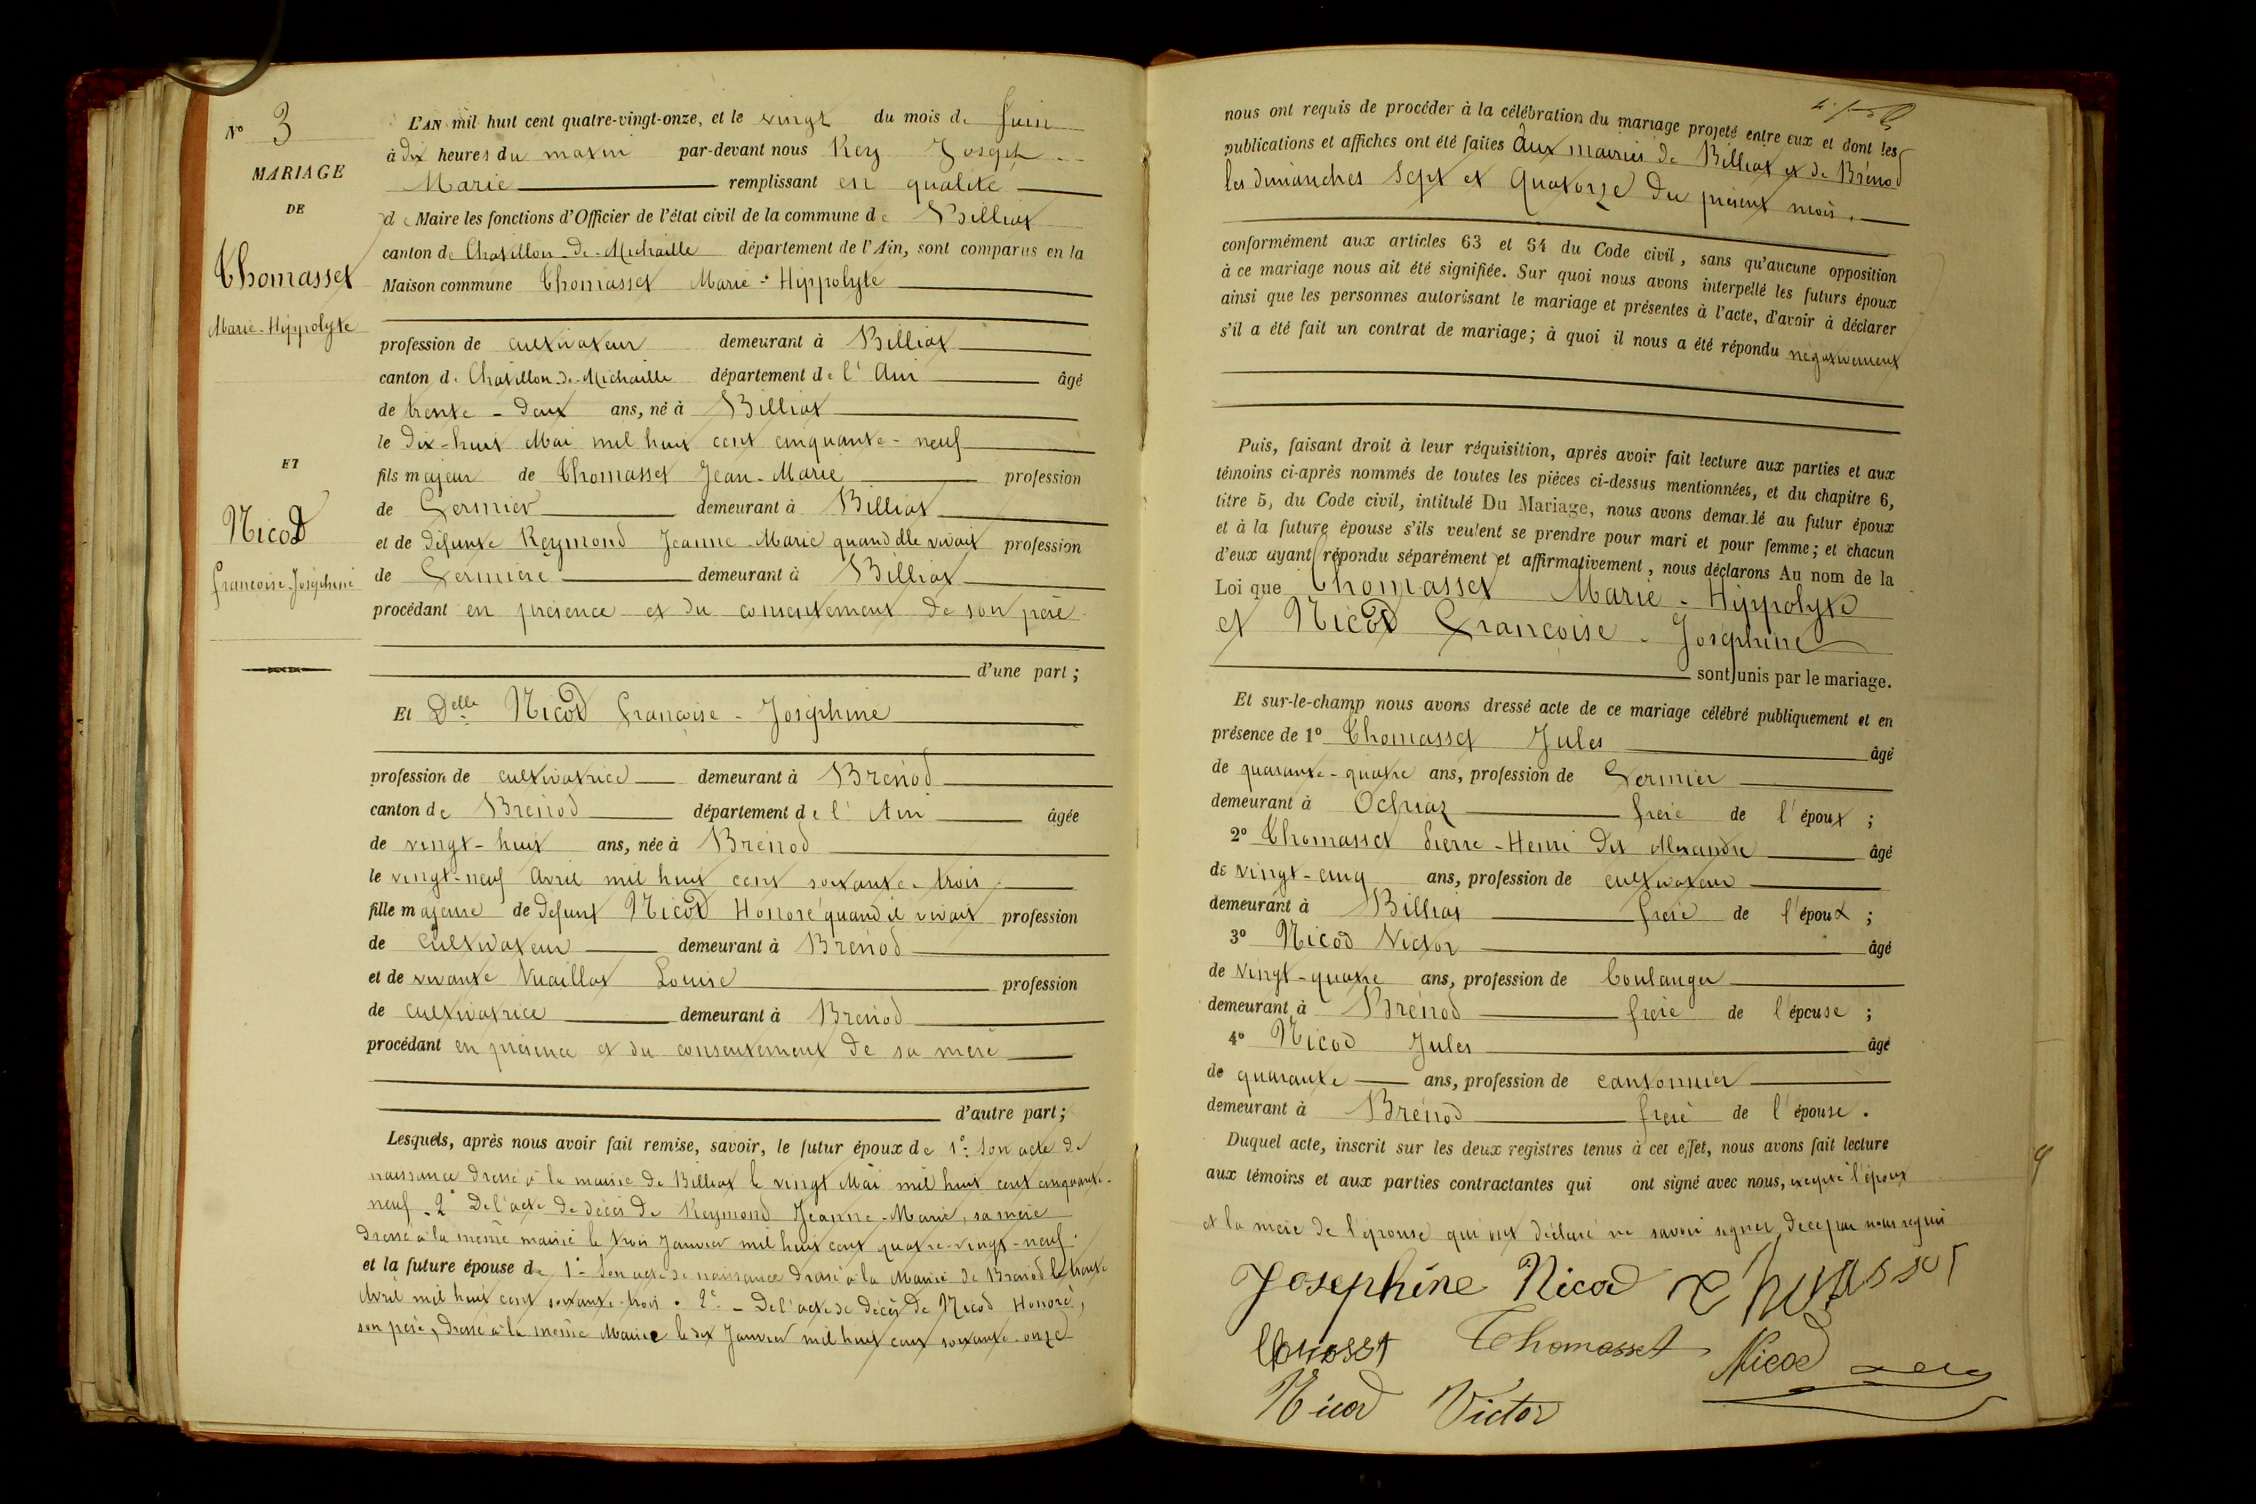 N° 3
MARIAGE
DE
Thomasset
Marie-Hippolyte
ET
Nicod
françoise-Joséphine
L'AN mil huit cent quatre-vingt-onze, et le vingt du mois de Juin
à dix heures du matin par-devant nous Rey Joseph
Marie remplissant en qualité
de Maire les fonctions d'Officier de l'état civil de la commune de Billiat
canton de Chatillon-de-Michaille département de l'Ain, sont comparus en la
Maison commune Thomasset Marie-Hippolyte
profession de cultivateur demeurant à Billiat
canton de Chatillon-de-Michaille département de l'Ain âgé
de trente-deux ans, né à Billiat
le dix-huit Mai mil huit cent cinquante-neuf
fils majeur de Thomasset Jean-Marie profession
de fermier demeurant à Billiat
et de défunte Reymond Jeanne-Marie quand elle vivait profession
de fermière demeurant à Billiat
procédant en présence et du consentement de son père
d'une part ;
Et Delle Nicod françoise-Joséphine
profession de cultivatrice demeurant à Brénod
canton de Brénod département de l'Ain âgée
de vingt-huit ans, née à Brénod
le vingt-neuf Avril mil huit cent soixante-trois
fille majeure de défunt Nicod Honoré quand il vivait profession
de cultivateur demeurant à Brénod
et de vivante Vuaillat Louise profession
de cultivatrice demeurant à Brénod
procédant en présence et du consentement de sa mère
d'autre part ;
Lesquels, après nous avoir fait remise, savoir, le futur époux de 1°: Son acte de
naissance dressé à la mairie de Billiat le vingt Mai mil huit cent cinquante-
neuf. 2° De l'acte de décès de Reymond Jeanne-Marie, sa mère
dressé à la même mairie le trois Janvier mil huit cent quatre-vingt-neuf.
et la future épouse de 1°- Son acte de naissance dressé à la Mairie de Brénod le trente
Avril mil huit cent soixante-trois. 2°- De l'acte de décès de Nicod Honoré,
son père, dressé à la même Mairie le dix Janvier mil huit cent soixante-onze
nous ont requis de procéder à la célébration du mariage projeté entre eux et dont les
publications et affiches ont été faites aux mairies de Billiat et de Brénod
les dimanches Sept et Quatorze du présent mois.
conformément aux articles 63 et 64 du Code civil, sans qu'aucune opposition
à ce mariage nous ait été signifiée. Sur quoi nous avons interpellé les futurs époux
ainsi que les personnes autorisant le mariage et présentes à l'acte, d'avoir à déclarer
s'il a été fait un contrat de mariage ; à quoi il nous a été répondu négativement
Puis, faisant droit à leur réquisition, après avoir fait lecture aux parties et aux
témoins ci-après nommés de toutes les pièces ci-dessus mentionnées, et du chapitre 6,
titre 5, du Code civil, intitulé Du Mariage, nous avons demandé au futur époux
et à la future épouse s'ils veulent se prendre pour mari et pour femme ; et chacun
d'eux ayant répondu séparément et affirmativement, nous déclarons Au nom de la
Loi que Thomasset Marie-Hippolyte
et Nicod Françoise-Joséphine
sont unis par le mariage.
Et sur-le-champ nous avons dressé acte de ce mariage célébré publiquement et en
présence de 1° Thomasset Jules âgé
de quarante-quatre ans, profession de fermier
demeurant à Ochiaz frère de l'époux ;
2° Thomasset Pierre-Henri dit Alexandre âgé
de vingt-cinq ans, profession de cultivateur
demeurant à Billiat frère de l'époux ;
3° Nicod Victor âgé
de vingt-quatre ans, profession de boulanger
demeurant à Brénod frère de l'épouse ;
4° Nicod Jules âgé
de quarante ans, profession de cantonnier
demeurant à Brénod frère de l'épouse.
Duquel acte, inscrit sur les deux registres tenus à cet effet, nous avons fait lecture
aux témoins et aux parties contractantes qui ont signé avec nous, excepté l'époux
et la mère de l'épouse qui ont déclaré ne savoir signer, de ce par nous requis
Josephine Nicod
Thomasset Nicod
Nicod Victor